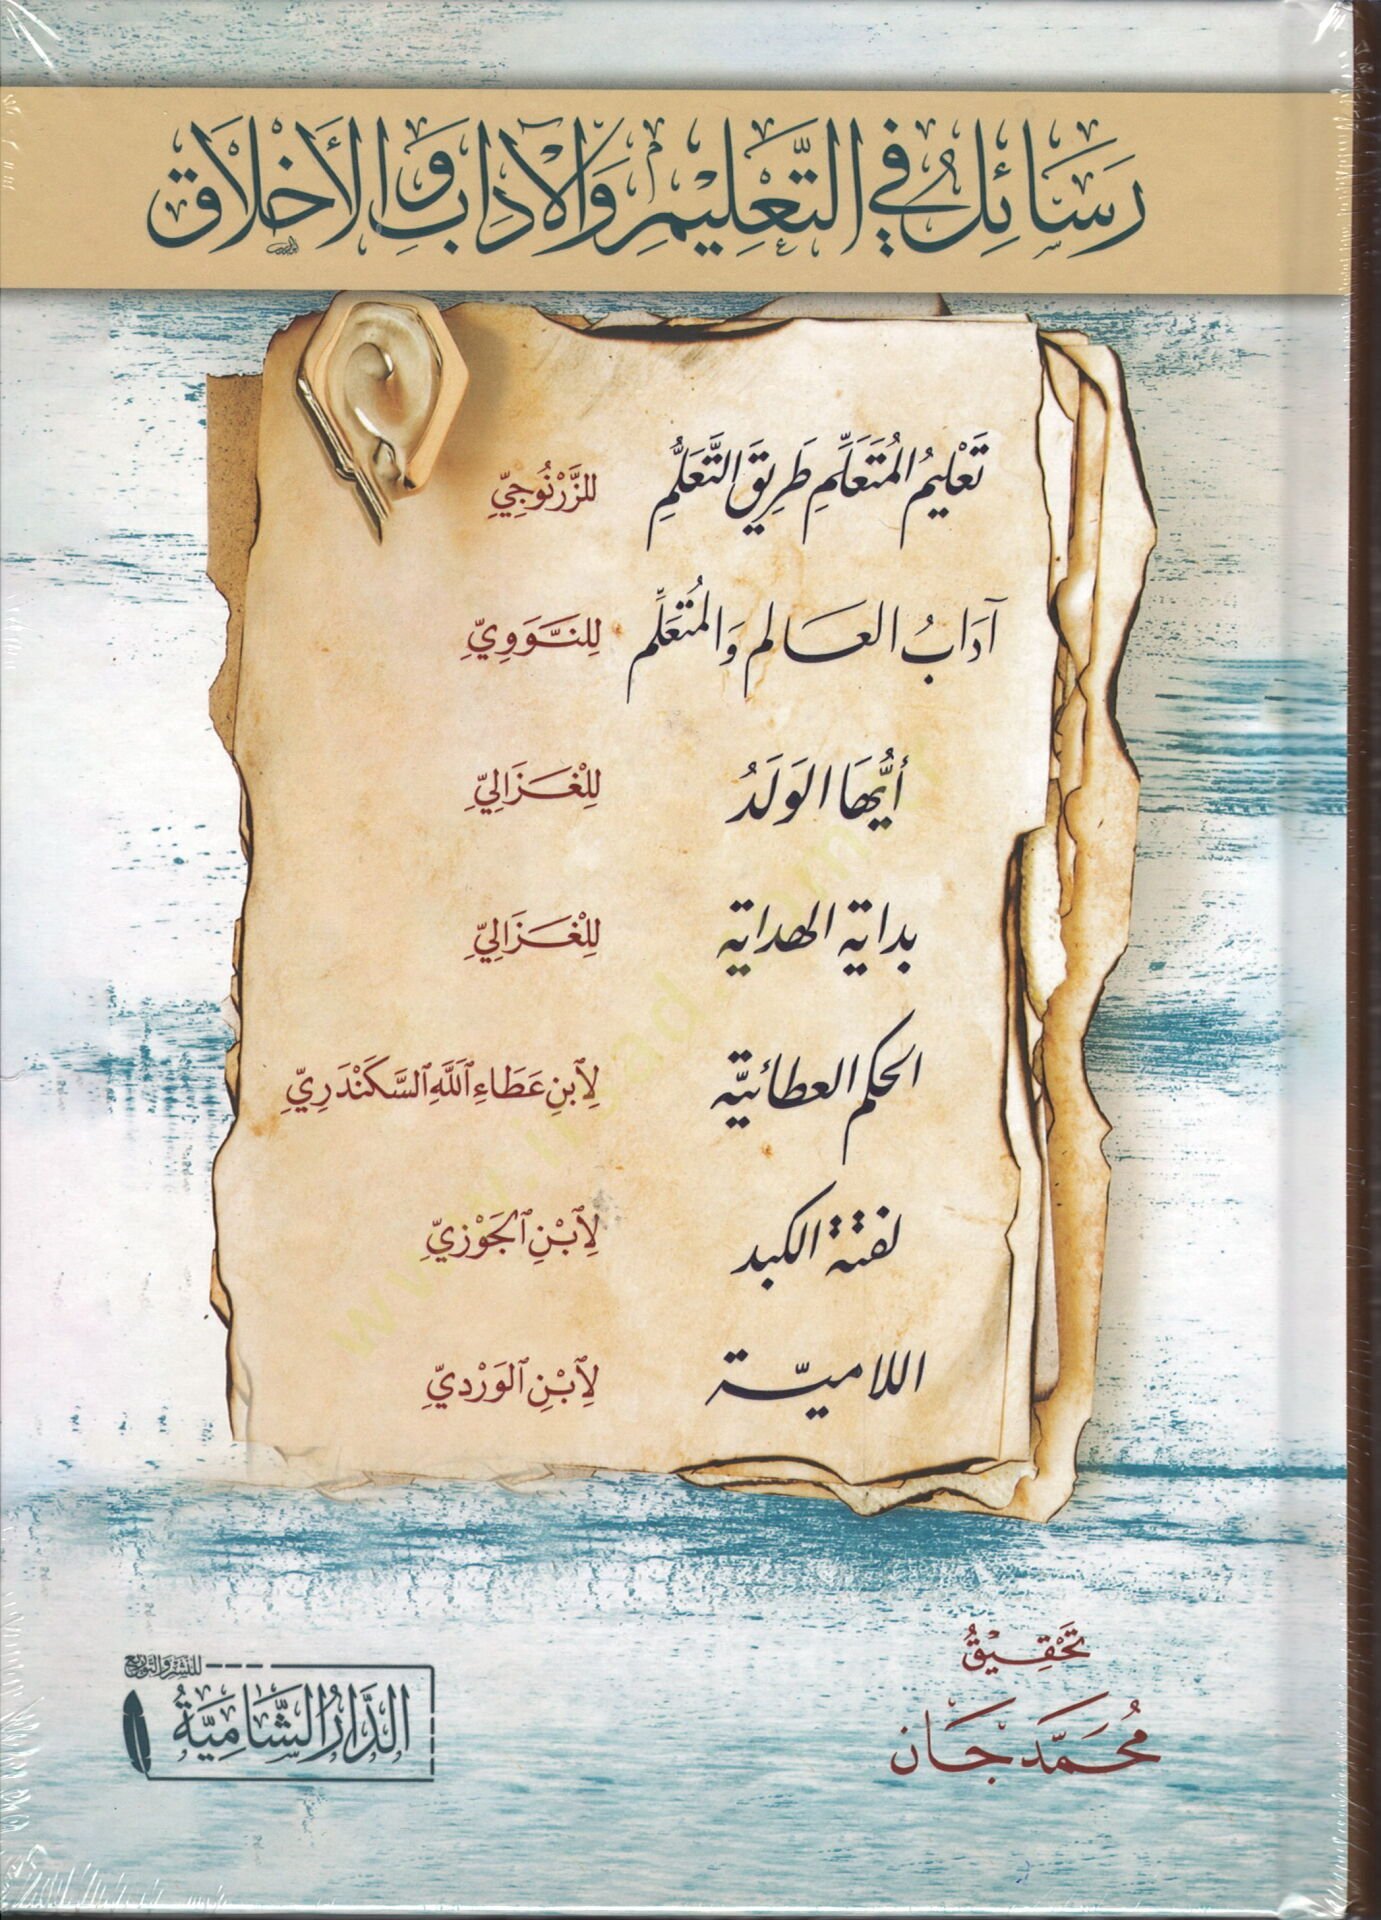 رَسَائِلُ فِي التَّعْلِيمِ وَالآدَابِ وَالأَخْلَاقِ
تَعْلِيمُ المُتَعَلِّمِ طَرِيقَ التَّعَلُّمِ لِلزَّرْنُوجِيِّ
آدَابُ العَالِمِ وَالمُتَعَلِّمِ لِلنَّوَوِيِّ
أَيُّهَا الوَلَدُ لِلْغَزَالِيِّ
بداية الهداية لِلْغَزَالِيِّ
الحكم العطائيّة لِابْنِ عَطَاءِ اللَّهِ السَّكَنْدَرِيِّ
لفتة الكبد لِابْنِ الجَوْزِيِّ
اللاميّة لِابْنِ الوَرْدِيِّ
تَحْقِيقُ
مُحَمَّد جَان
للنشر والتوزيع
الدَّارُ الشَّامِيَّةُ